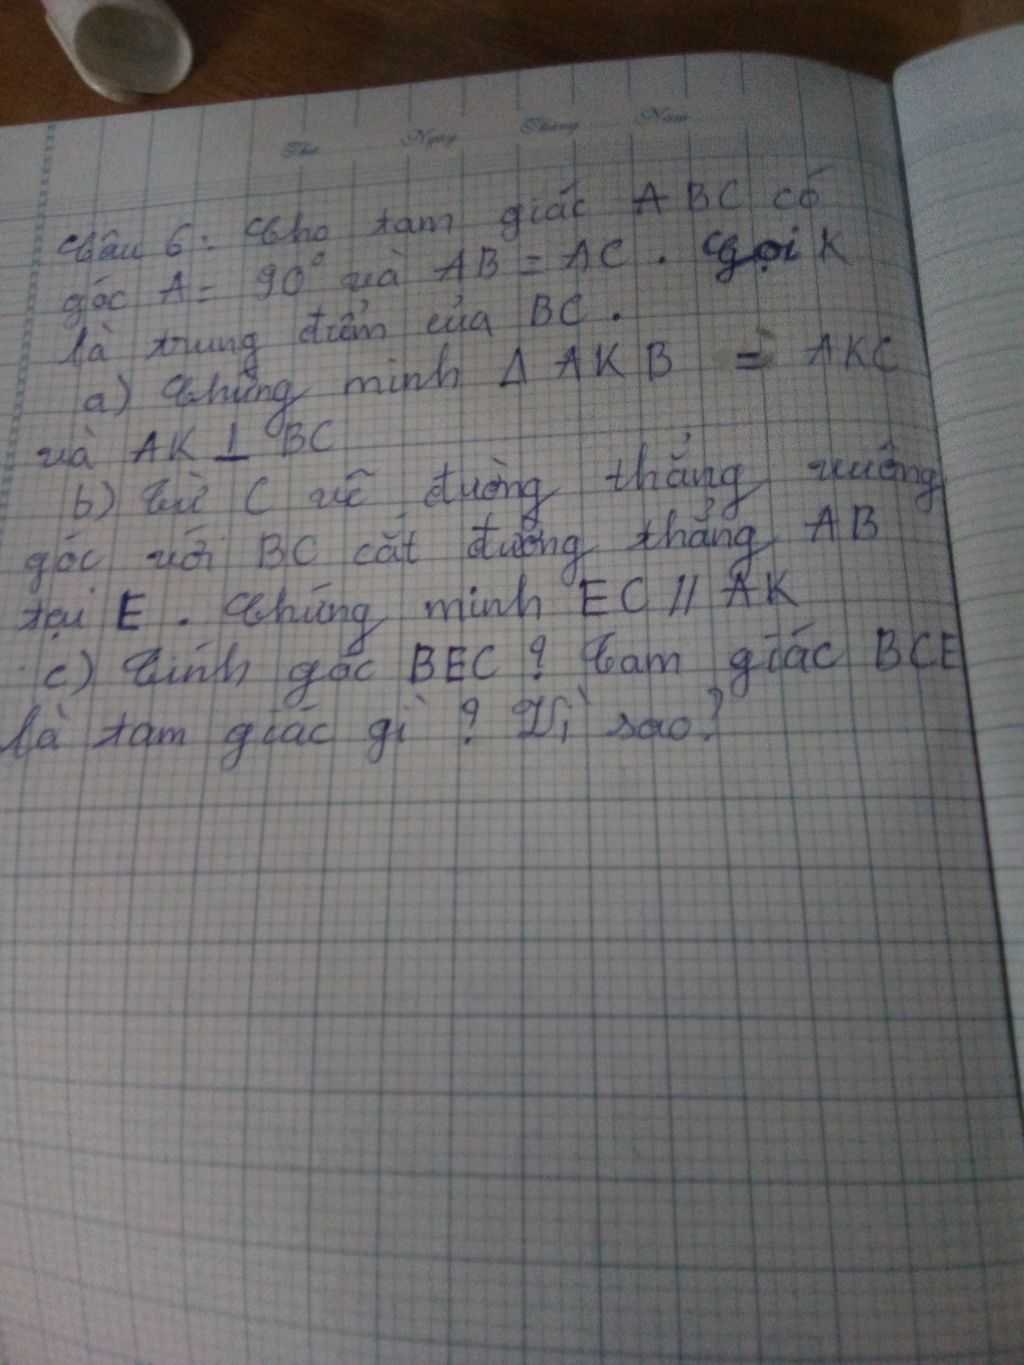 Thứ Ngày Tháng Năm
Câu 6: Cho tam giác ABC có
góc A = 90° và AB = AC. Gọi K
là trung điểm của BC.
a) Chứng minh Δ AKB = AKC
và AK ⊥ BC
b) Từ C vẽ đường thẳng vuông
góc với BC cắt đường thẳng AB
tại E. Chứng minh EC // AK
c) Tính góc BEC ? Tam giác BCE
là tam giác gì ? Vì sao?